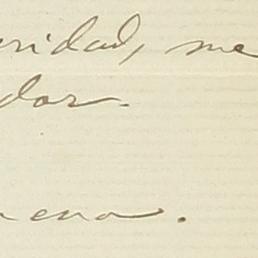 eridad, me
dor.
ena.